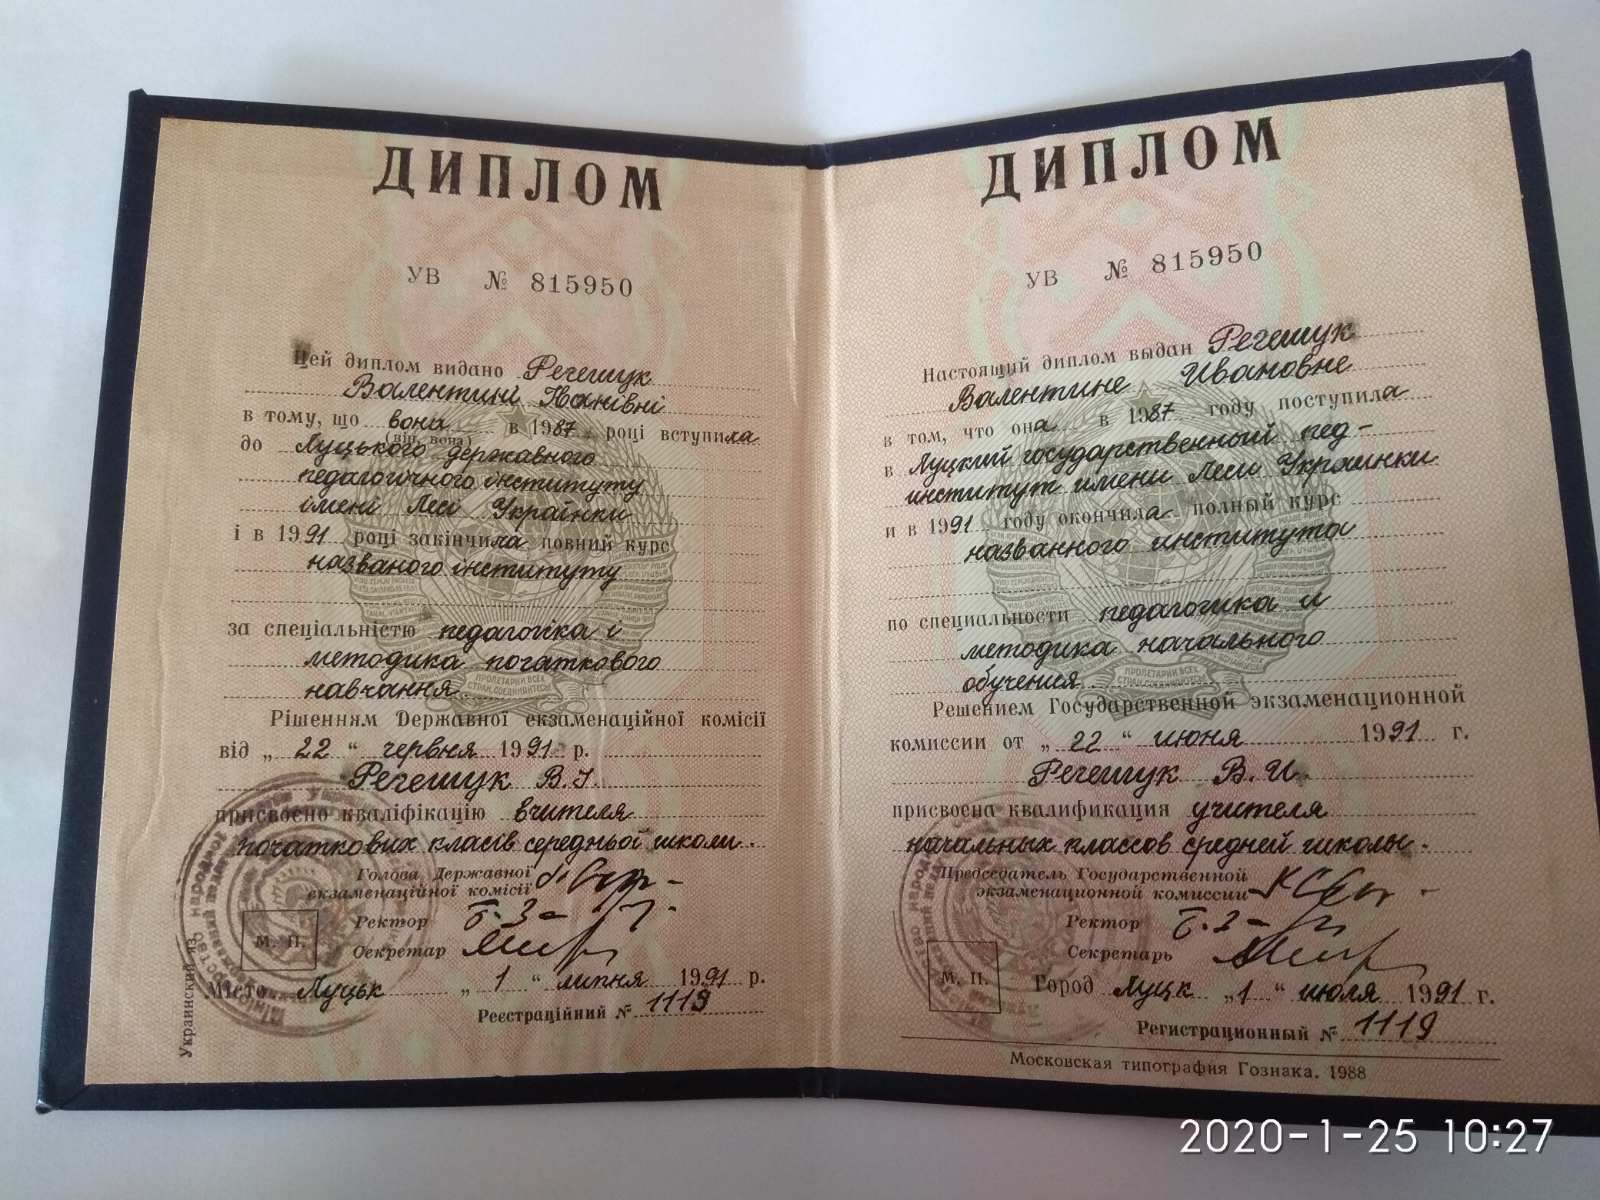 ДИПЛОМ
УВ № 815950
Цей диплом видано Регешук
Валентині Іванівні
в тому, що вона в 1987 році вступила
(він, вона)
до Луцького державного
педагогічного інституту
імені Лесі Українки
і в 1991 році закінчила повний курс
названого інституту
за спеціальністю педагогіка і
методика початкового
навчання
Рішенням Державної екзаменаційної комісії
від „ 22 “ червня 1991 р.
Регешук В.І.
присвоєно кваліфікацію вчителя
початкових класів середньої школи.
Голова Державної
екзаменаційної комісії
Ректор
Секретар
М. П.
Місто Луцьк „ 1 “ липня 1991 р.
Реєстраційний № 1119
Украинский яз.
ДИПЛОМ
УВ № 815950
Настоящий диплом выдан Регешук
Валентине Ивановне
в том, что она в 1987 году поступила
в Луцкий государственный пед-
институт имени Леси Украинки
и в 1991 году окончила полный курс
названного института
по специальности педагогика и
методика начального
обучения
Решением Государственной экзаменационной
комиссии от „ 22 “ июня 1991 г.
Регешук В.И.
присвоена квалификация учителя
начальных классов средней школы.
Председатель Государственной
экзаменационной комиссии
Ректор
Секретарь
М. П.
Город Луцк „ 1 “ июля 1991 г.
Регистрационный № 1119
Московская типография Гознака. 1988
ПРОЛЕТАРИИ ВСЕХ
СТРАН, СОЕДИНЯЙТЕСЬ!
2020-1-25 10:27